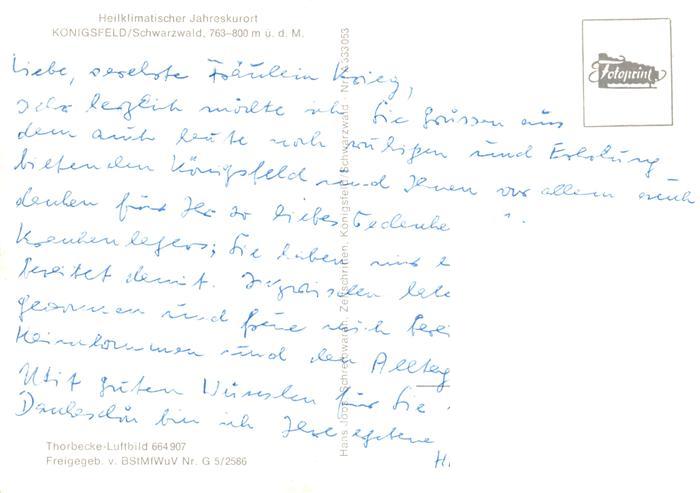 Heilklimatischer Jahreskurort
KÖNIGSFELD/Schwarzwald, 763–800 m ü. d. M.
Fotoprint
Liebe, verehrte Fräulein Krieg,
sehr herzlich möchte ich Sie grüssen aus
dem auch heute noch ruhigen und Erholung
bietenden Königsfeld und Ihnen vor allem auch
danken für Ihr so liebes Gedenke
Krankenlagers; Sie haben mir
bereitet damit. Inzwischen
und freue mich
Heimkommen und den Alltag
Mit guten Wünschen für Sie
Dankeschön bin ich Ihre ergebene
H.
Hans Joop, Schreibwaren, Zeitschriften, Königsfeld/Schwarzwald - Nr. 333053
Thorbecke-Luftbild 664907
Freigegeb. v. BStMfWuV Nr. G 5/2586